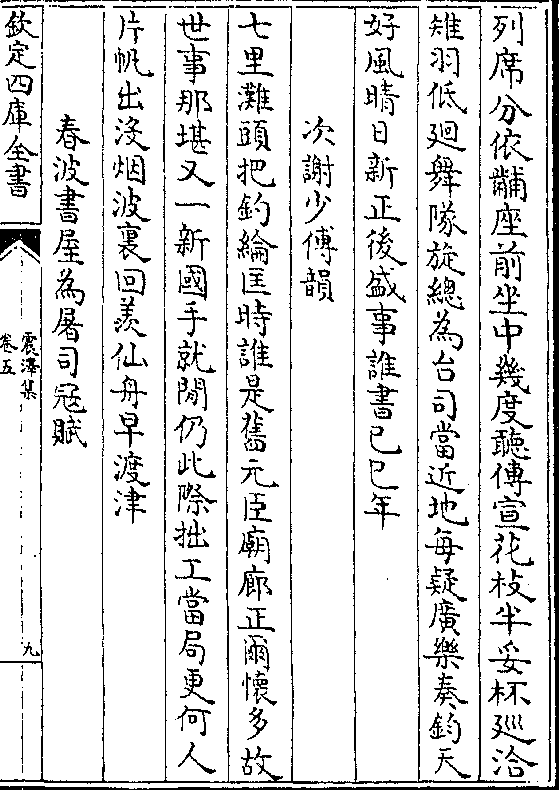 列席分依黼座前坐中幾度聽傳宣花枝半妥杯廵洽
雉羽低廻舞隊旋總為台司當近地每疑廣樂奏鈞天
好風晴日新正後盛事誰書己巳年
次謝少傅韻
七里灘頭把釣綸匡時誰是舊元臣廟廊正爾懷多故
世事那堪又一新國手就閒仍此際拙工當局更何人
片帆出沒烟波裏回羨仙舟早渡津
春波書屋為屠司冦賦
欽定四庫全書
震澤集
卷五
九